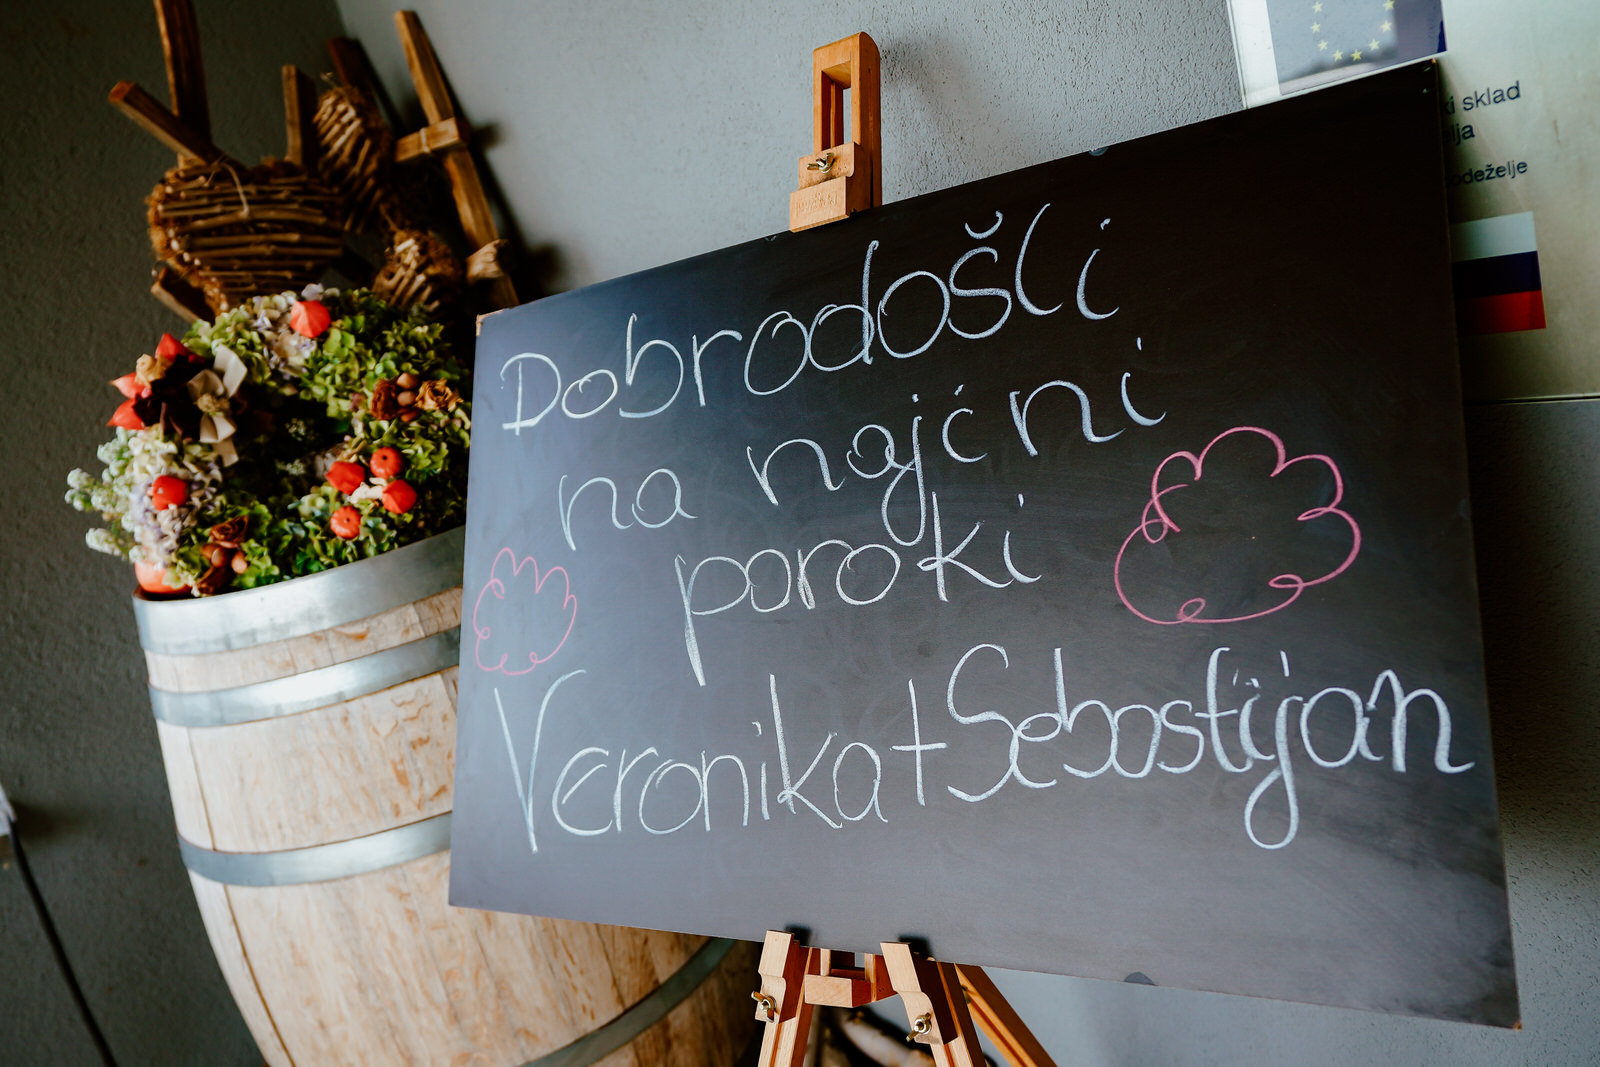 Dobrodošli
na najini
poroki
Veronika + Sebastijan
ki sklad
lja
odeželje